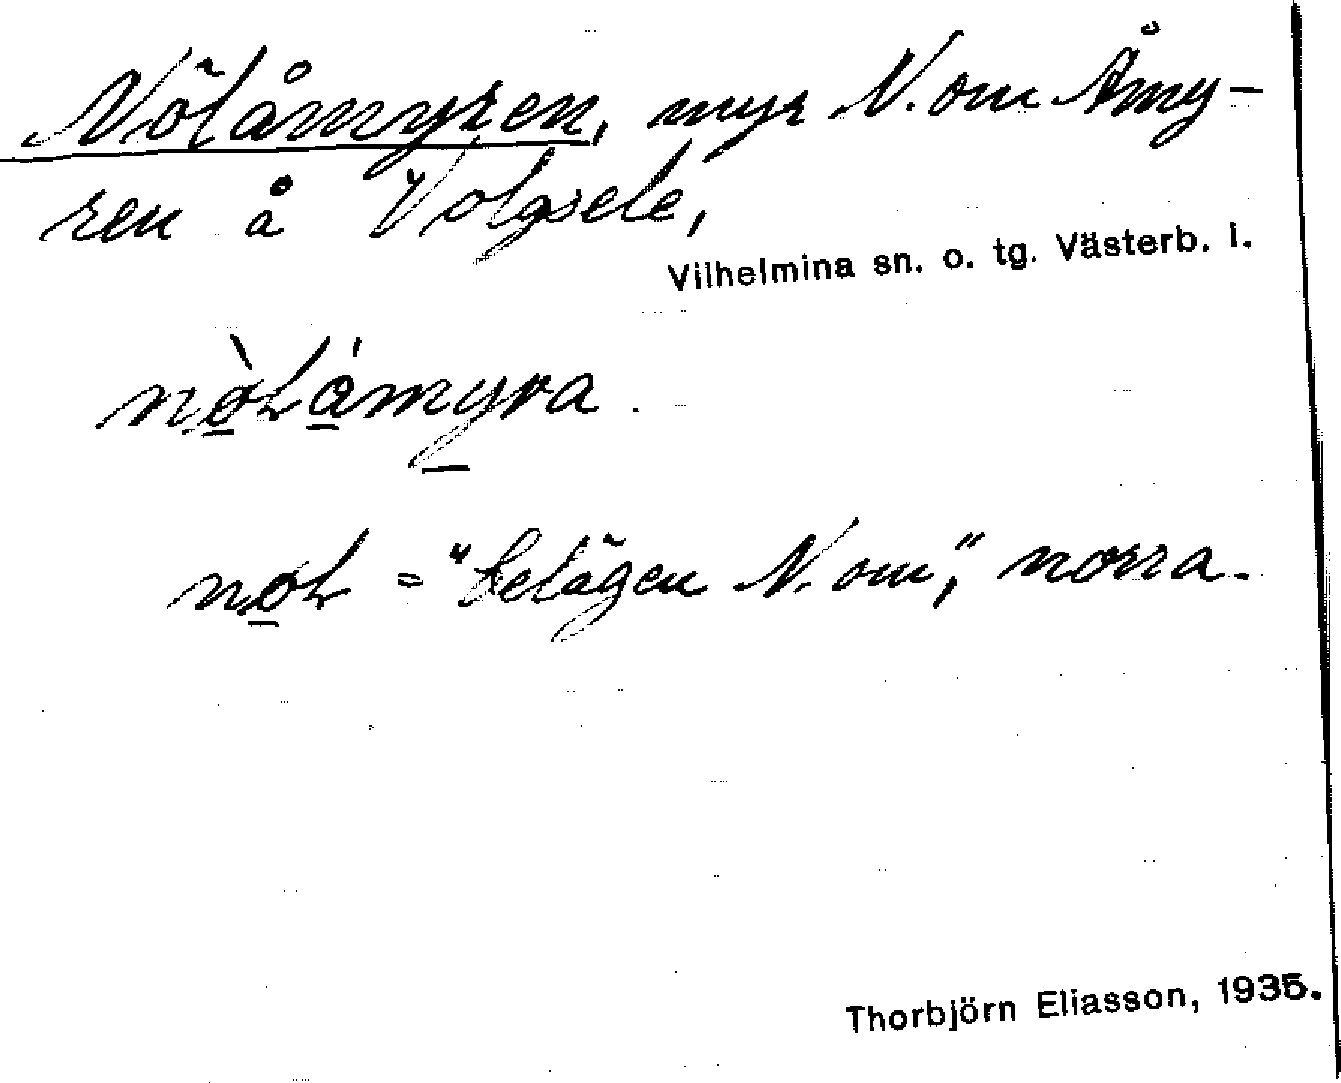 Nölåmyren, myr N. om Åmy-
ren å Volgsele,
Vilhelmina sn. o. tg. Västerb. l.
nòlåmyra.
nol = "belägen N. om", norra.
Thorbjörn Eliasson, 1935.